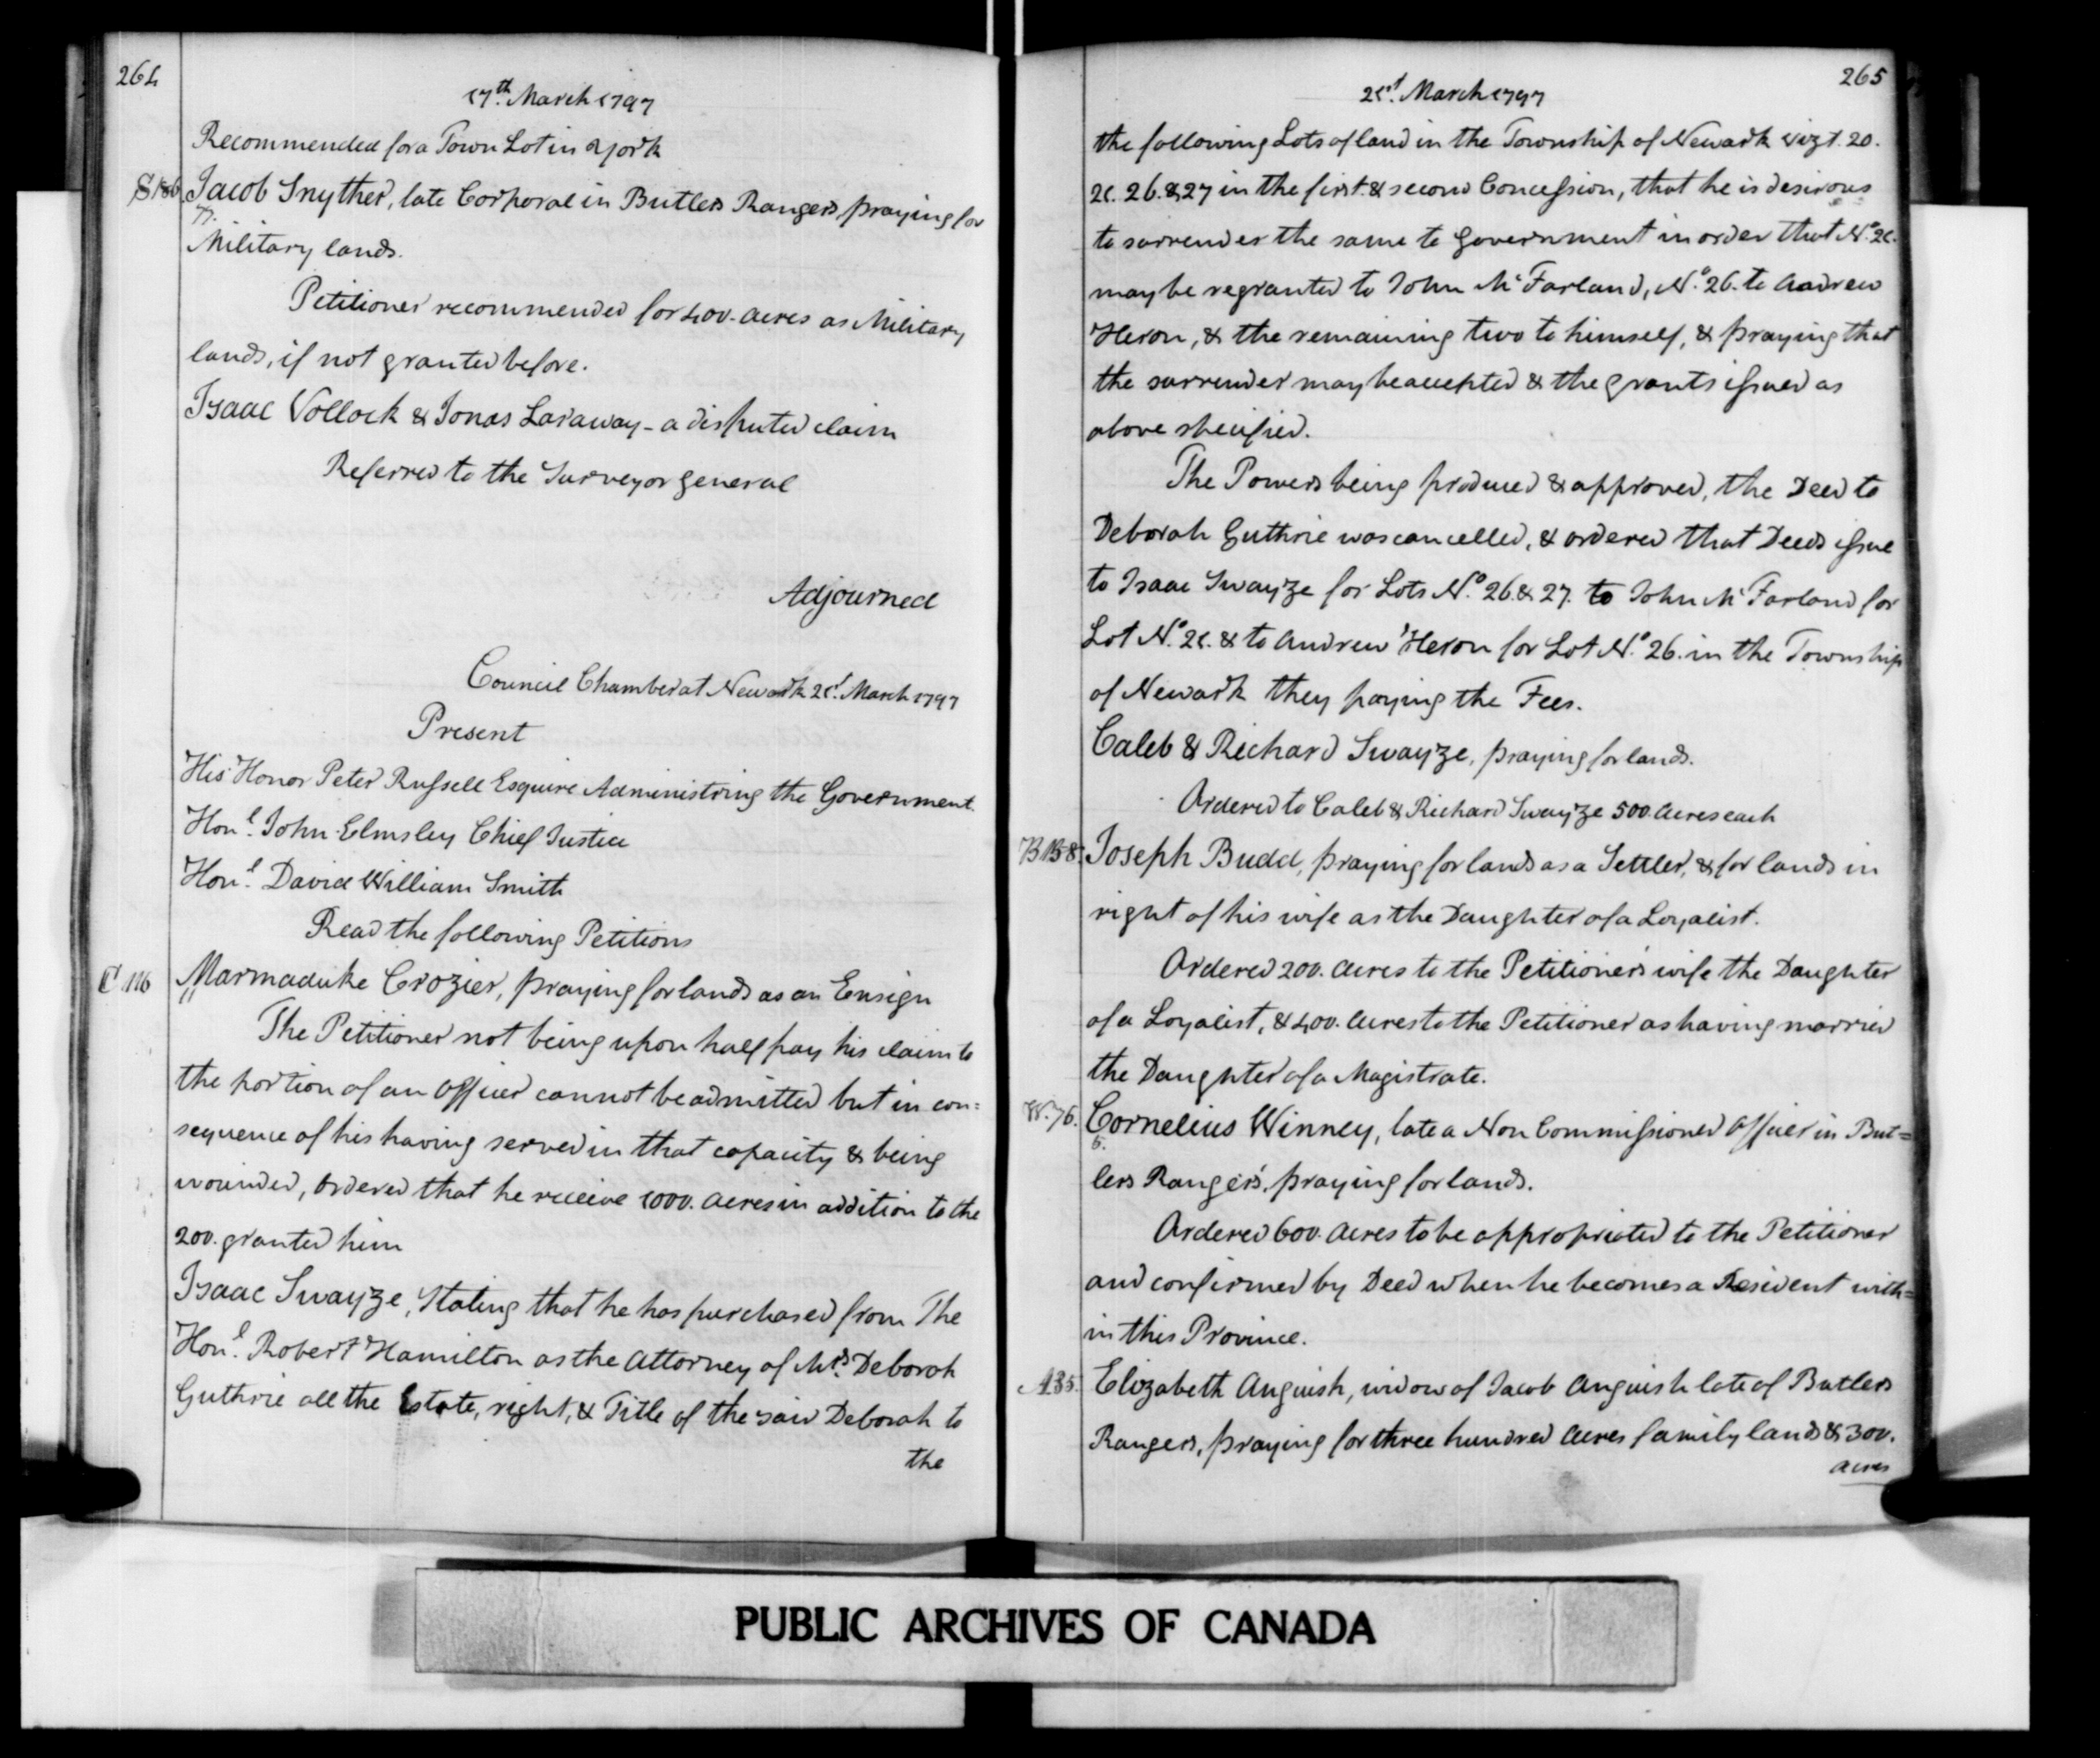 264
17th. March 1797
Recommended for a Town Lot in York
S 186 Jacob Snyther, late Corporal in Butlers Rangers, praying for
Military lands.
Petitioner recommended for 400. acres as Military
lands, if not granted before.
Isaac Vollock & Jonas Laraway - a disputed claim
Referred to the Surveyor General
Adjourned
Council Chamber at Newark 21st. March 1797
Present
His Honor Peter Russell Esquire Administring the Government.
Honl. John Elmsley Chief Justice
Honl. David William Smith
Read the following Petitions
C 116 Marmaduke Crozier, praying for lands as an Ensign
The Petitioner not being upon half pay his claim to
the portion of an Officer cannot be admitted but in con=
sequence of his having served in that capacity & being
wounded, Ordered that he receive 1000. acres in addition to the
200. granted him
Isaac Swayze, Stating that he has purchased from The
Honl. Robert Hamilton as the Attorney of Mrs. Deborah
Guthrie all the Estate, right, & Title of the said Deborah to
the
265
21st. March 1797
the following Lots of land in the Township of Newark vizt. 20.
21. 26. & 27 in the first & second Concession, that he is desirous
to surrender the same to Government in order that No. 21.
may be regranted to John McFarland, No. 26. to Andrew
Heron, & the remaining two to himself, & praying that
the surrender may be accepted & the grants issued as
above specified.
The Powers being produced & approved, the Deed to
Deborah Guthrie was cancelled, & ordered that Deeds issue
to Isaac Swayze for Lots No. 26. & 27. to John McFarland for
Lot No. 21. & to Andrew Heron for Lot No. 26. in the Township
of Newark they paying the Fees.
Caleb & Richard Swayze, praying for lands.
Ordered to Caleb & Richard Swayze 500 Acres each
B 158. Joseph Budd, praying for lands as a Settler, & for lands in
right of his wife as the Daughter of a Loyalist.
Ordered 200. Acres to the Petitioner's wife the Daughter
of a Loyalist, & 400. Acres to the Petitioner as having married
the Daughter of a Magistrate.
W. 76. Cornelius Winney, late a Non Commissioned Officer in But=
lers Rangers, praying for lands.
Ordered 600. Acres to be appropriated to the Petitioner
and confirmed by Deed when he becomes a Resident with=
in this Province.
A 35. Elizabeth Anguish, widow of Jacob Anguish late of Butlers
Rangers, praying for three hundred Acres family lands & 300.
acres
PUBLIC ARCHIVES OF CANADA